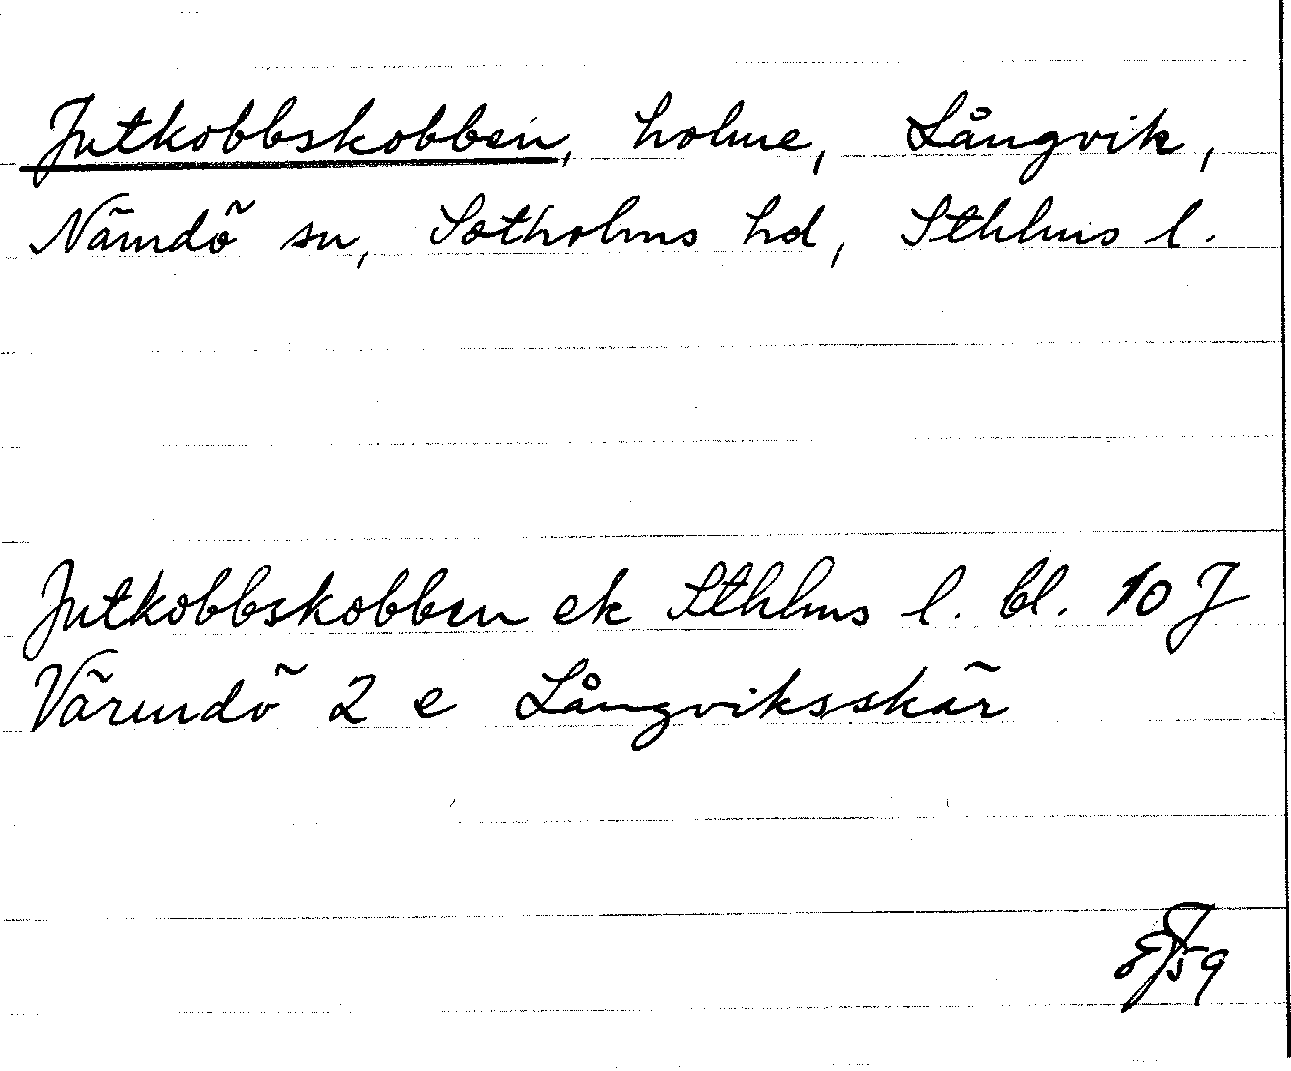 Jutkobbskobben, holme, Långvik,
Nämdö sn, Sotholms hd, Sthlms l.
Jutkobbskobben ek Sthlms l. bl. 10 J
Värmdö 2 e Långviksskär